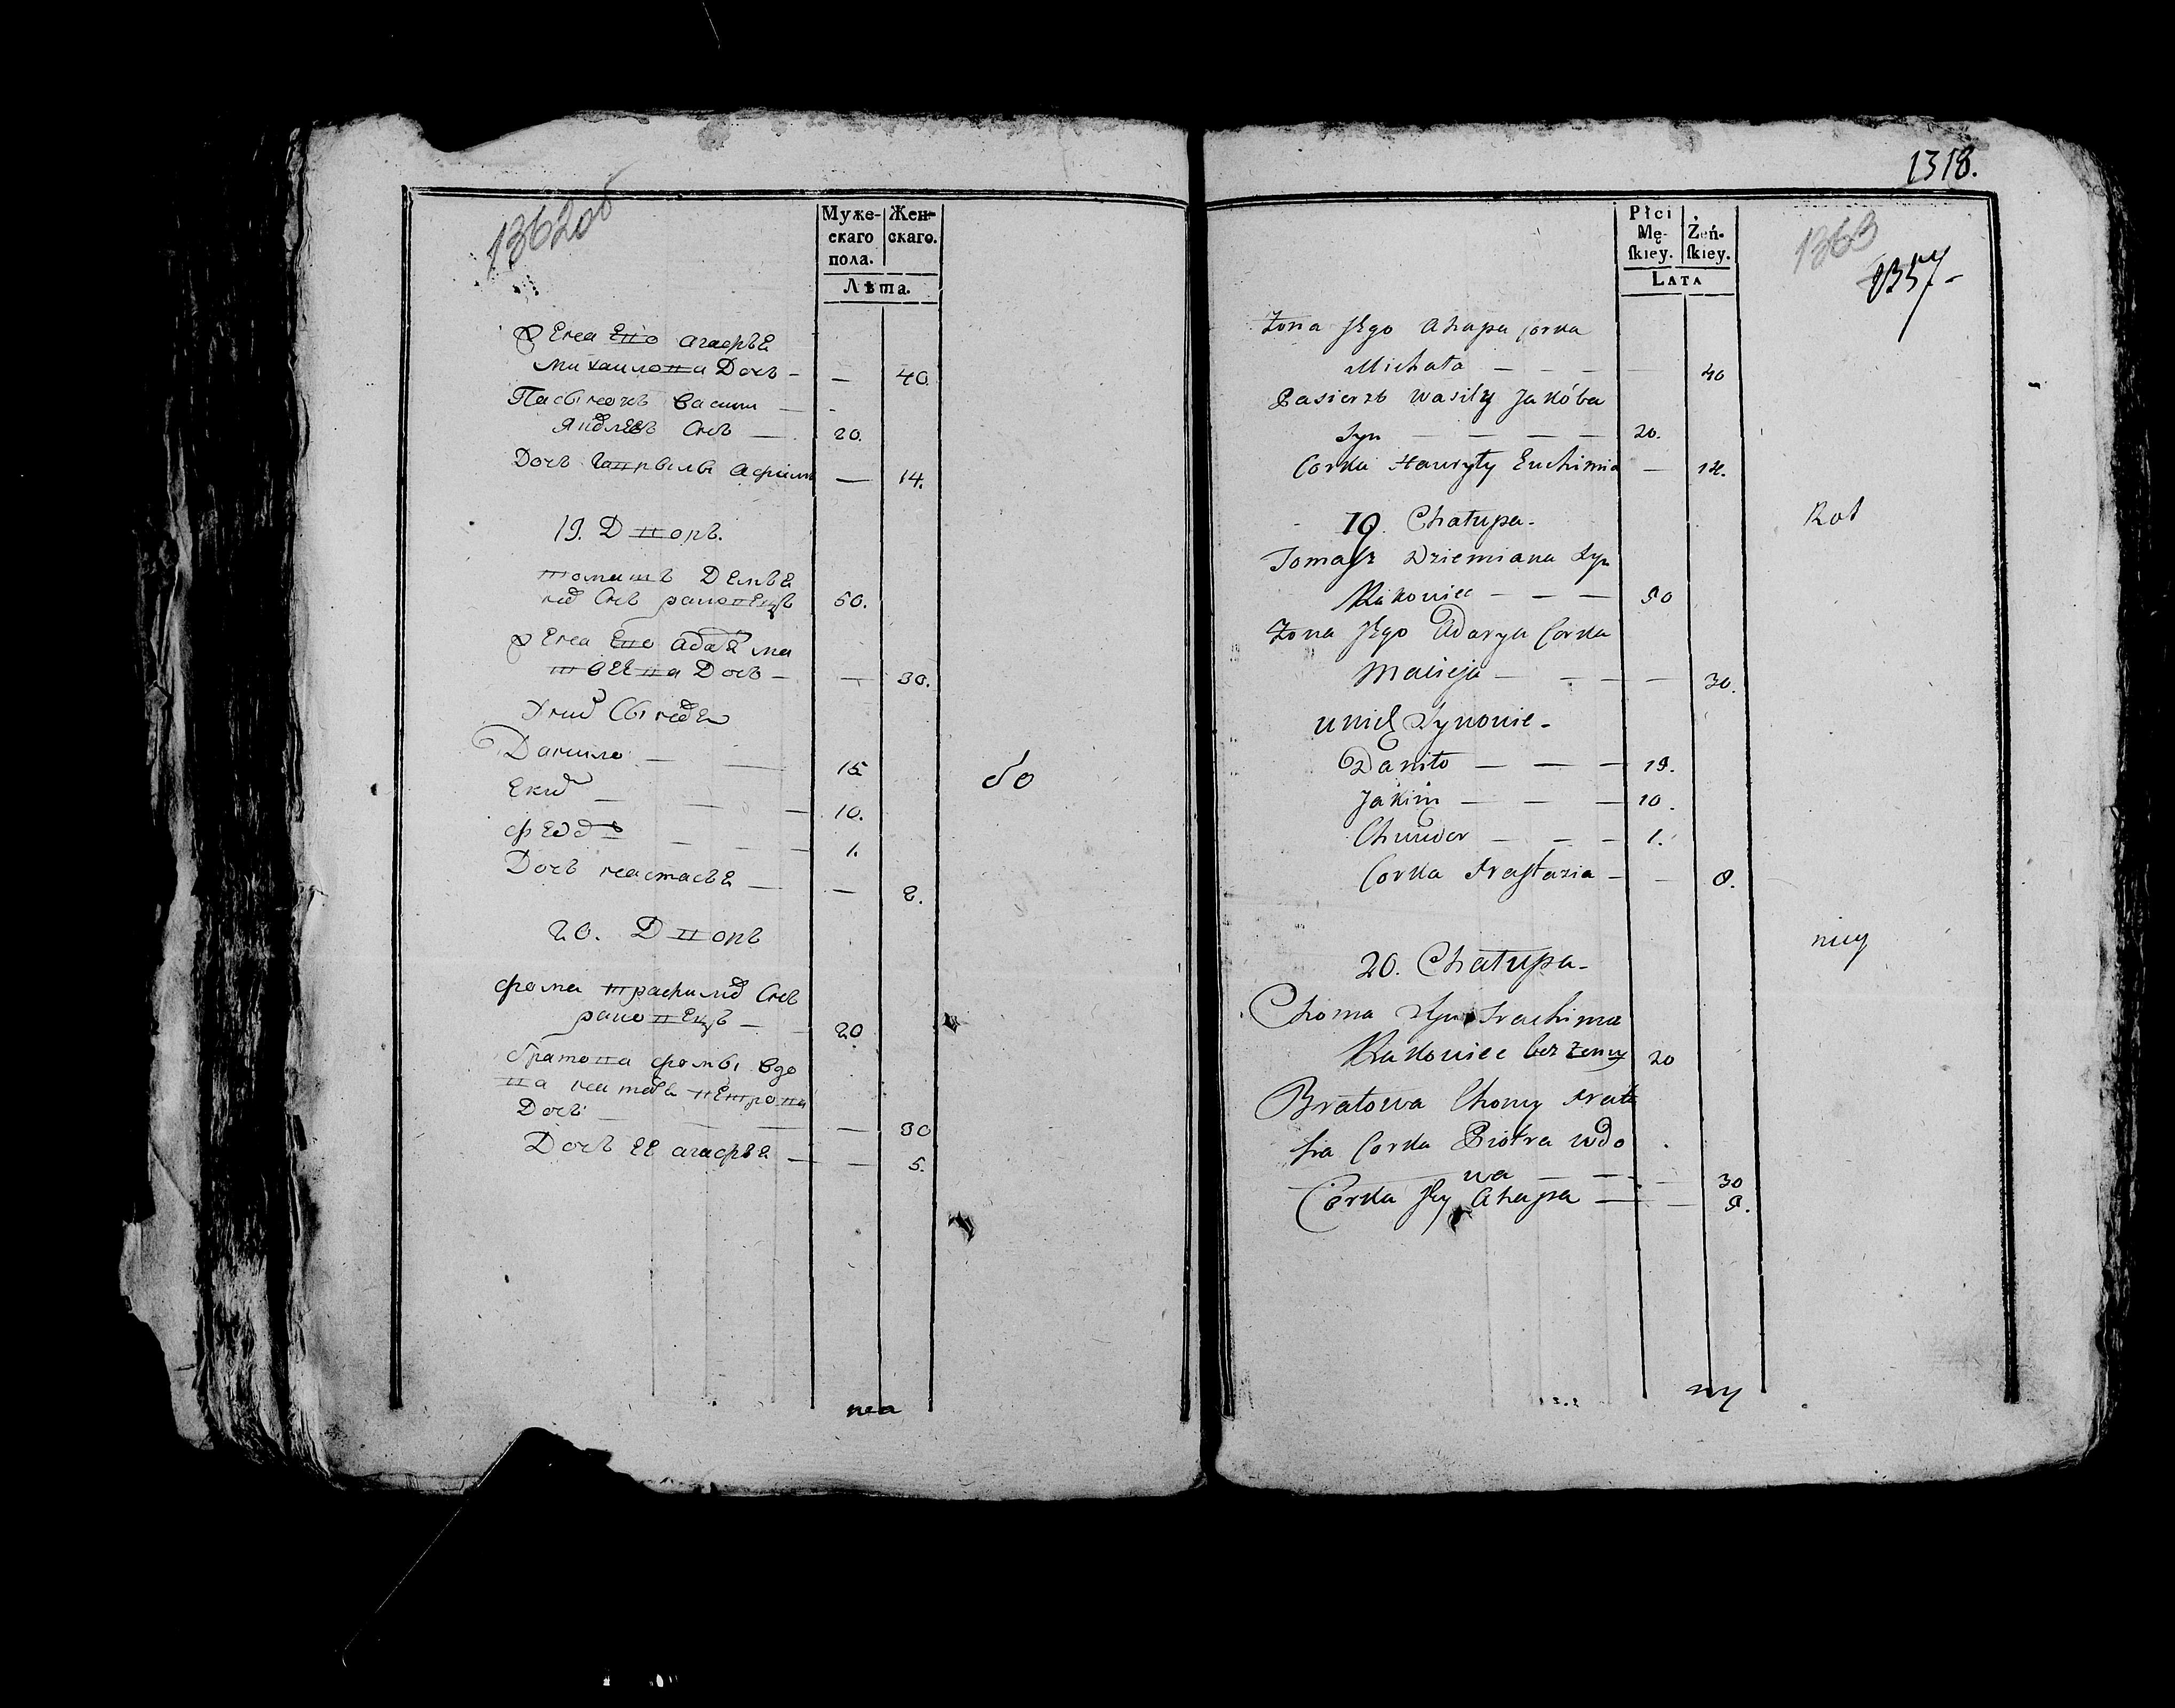 1362об
Муже- Жен-
скаго скаго.
пола.
Лѣта.
Жена Его агафьѣ
михаилова Дочь - — 40
Пасынокъ васили —
яковлевъ Снъ — 20.
Дочь гаврылы — 14.
19. Дворъ.
томашъ Демья
на Снъ раковецъ 50.
Жена Его адаря ма
твеева Дочь - — 30.
У них Сынове
Данило — — 15
Еким — — — 10.
федор — — — 1.
Дочь настасья — — 8.
до
20. Дворъ
фома трафима Снъ
раковецъ — 20
братова фомы вдо
ва настасья петрова
Дочь — — — — 30
Дочь ее агафья — — 5.
на
1318.
Płci
Mę- Żeń-
ſkiey. ſkiey.
LATA
1363
1357-
Żona Jego Ahapa Corka
Michała — — — 40
Pasierzb Wasily Jakóba
Syn — — — — 20.
Corka Hawryły Euchimia — 14.
19. Chałupa-
Rot
Tomaſz Dziemiana Syn
Rakowiec — — — 50
Żona Jego Adarya Corka
Macieja — — — — 30.
u nich Synowie -
Daniło — — — 15.
Jakim — — — 10.
Chwedor — — — 1.
Corka Nastazia — — 8.
20. Chałupa-
Choma Syn Trachima
Rakowiec bez żony 20
Bratowa Chomy Nasta
sia Corka Piotra wdo
wa — — — 30
Corka Jey Ahapa — — 5.